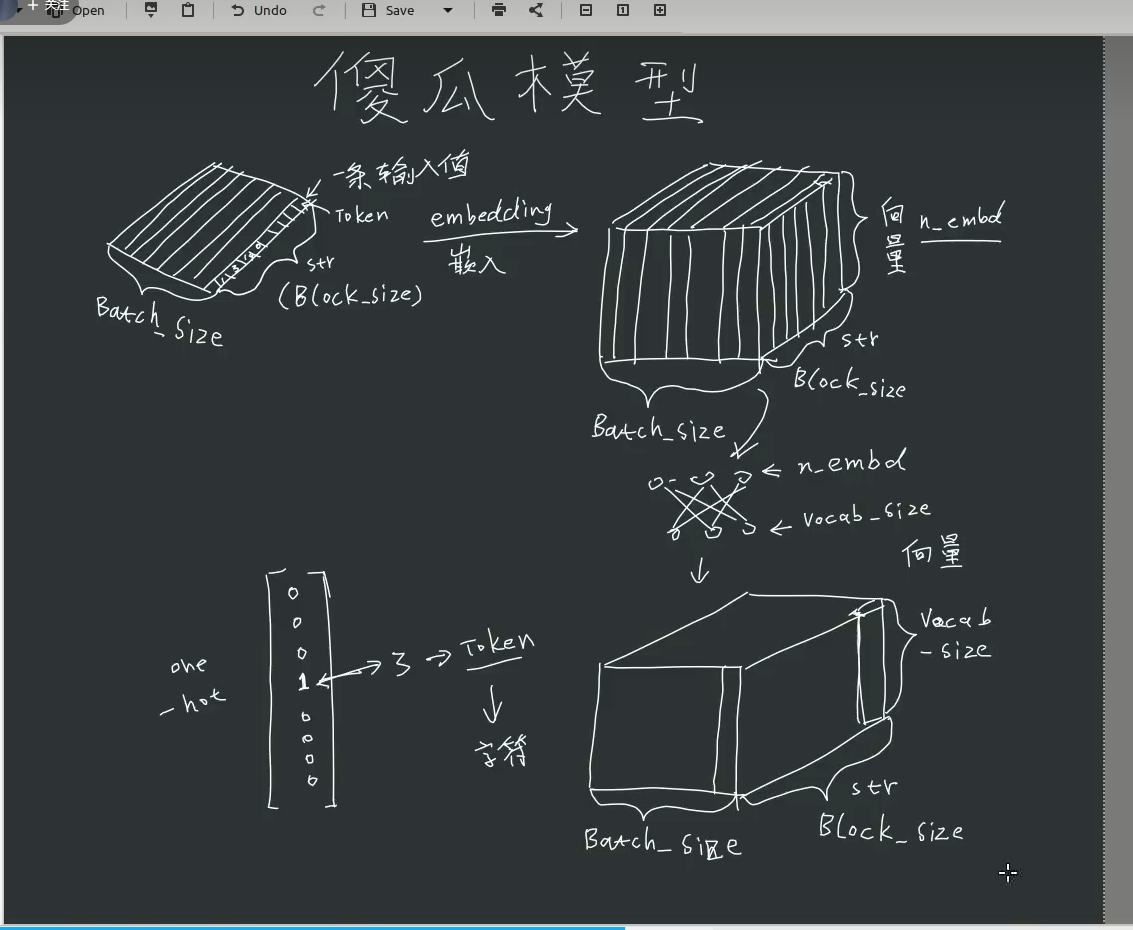 + 关注
Open
Undo
Save
傻瓜模型
一条输入值
Token
str
(Block_size)
Batch_Size
embedding
嵌入
向量
n_embd
str
Block_size
Batch_size
n_embd
Vocab_size
向量
one
-hot
0
0
0
1
0
0
0
0
3
Token
字符
Vocab
-size
str
Block_size
Batch_size